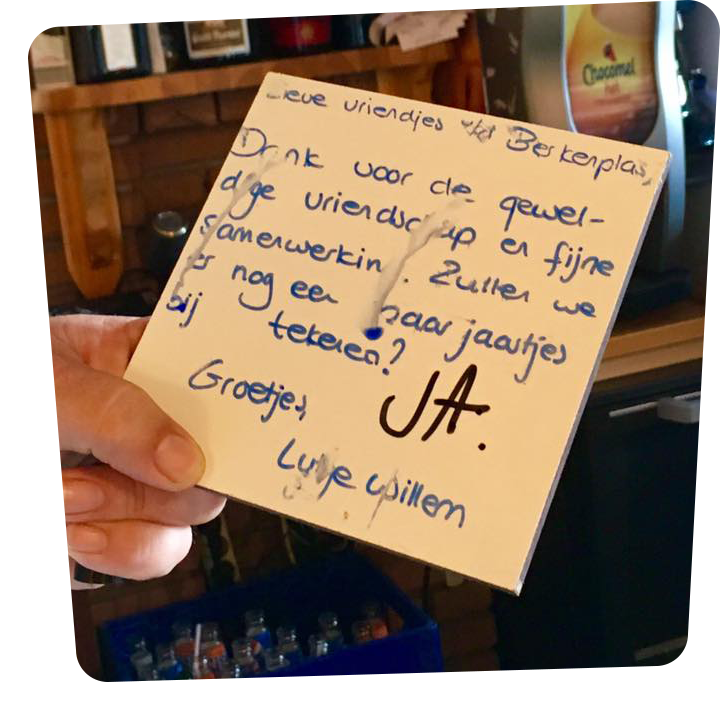 Lieve vriendjes v/d Berkenplas,
Dank voor de gewel-
dige vriendschap en fijne
samenwerking. Zullen we
er nog een paar jaartjes
bij tekenen?
JA.
Groetjes,
Lutje Willem
Chocomel